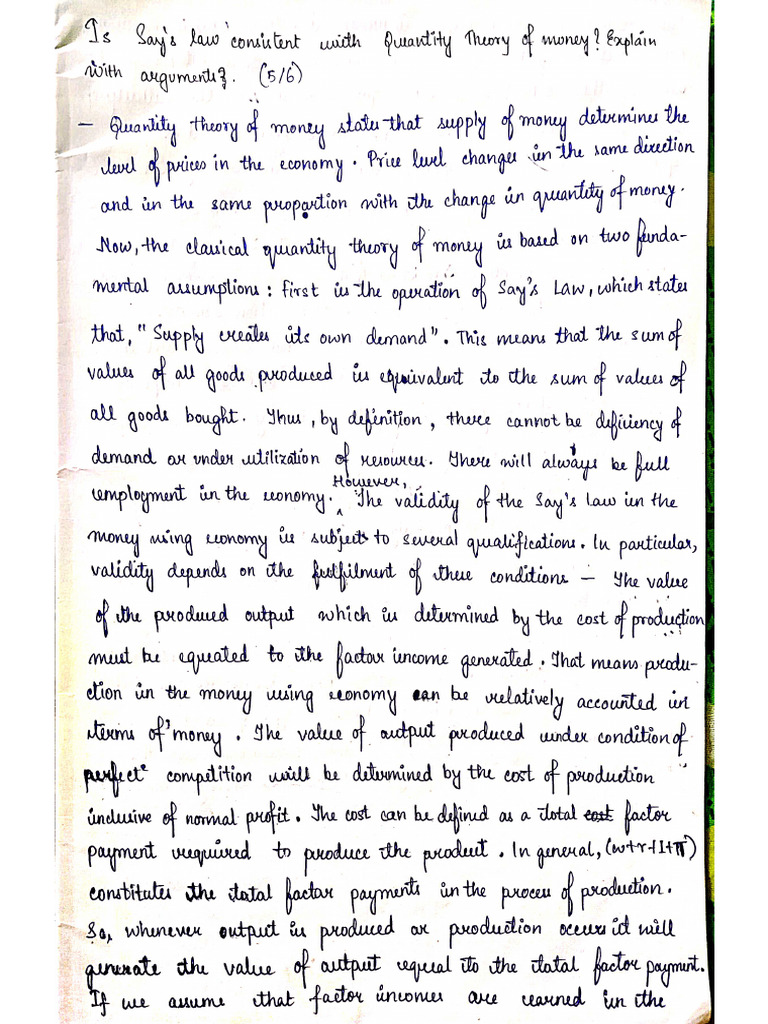 Is Say's law consistent with Quantity Theory of money? Explain
with arguments. (5/6)
— Quantity theory of money states that supply of money determines the
level of prices in the economy. Price level changes in the same direction
and in the same proportion with the change in quantity of money.
Now, the classical quantity theory of money is based on two funda-
mental assumptions: first is the operation of Say's Law, which states
that, "Supply creates its own demand". This means that the sum of
values of all goods produced is equivalent to the sum of values of
all goods bought. Thus, by definition, there cannot be deficiency of
demand or under utilization of resources. There will always be full
employment in the economy. However, The validity of the Say's law in the
money using economy is subject to several qualifications. In particular,
validity depends on the fulfilment of these conditions — The value
of the produced output which is determined by the cost of production
must be equated to the factor income generated. That means produ-
ction in the money using economy can be relatively accounted in
terms of money. The value of output produced under condition of
perfect competition will be determined by the cost of production
inclusive of normal profit. The cost can be defined as a total factor
payment required to produce the product. In general, (w+r+I+π)
constitutes the total factor payments in the process of production.
So, whenever output is produced or production occurs it will
generate the value of output equal to the total factor payment.
If we assume that factor incomes are earned in the